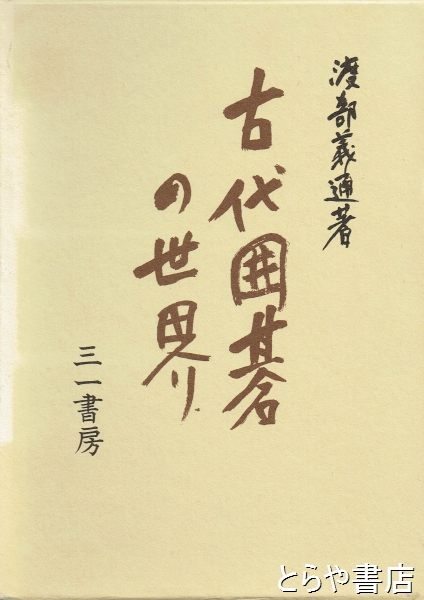 渡部義通著
古代囲碁
の世界
三一書房
とらや書店